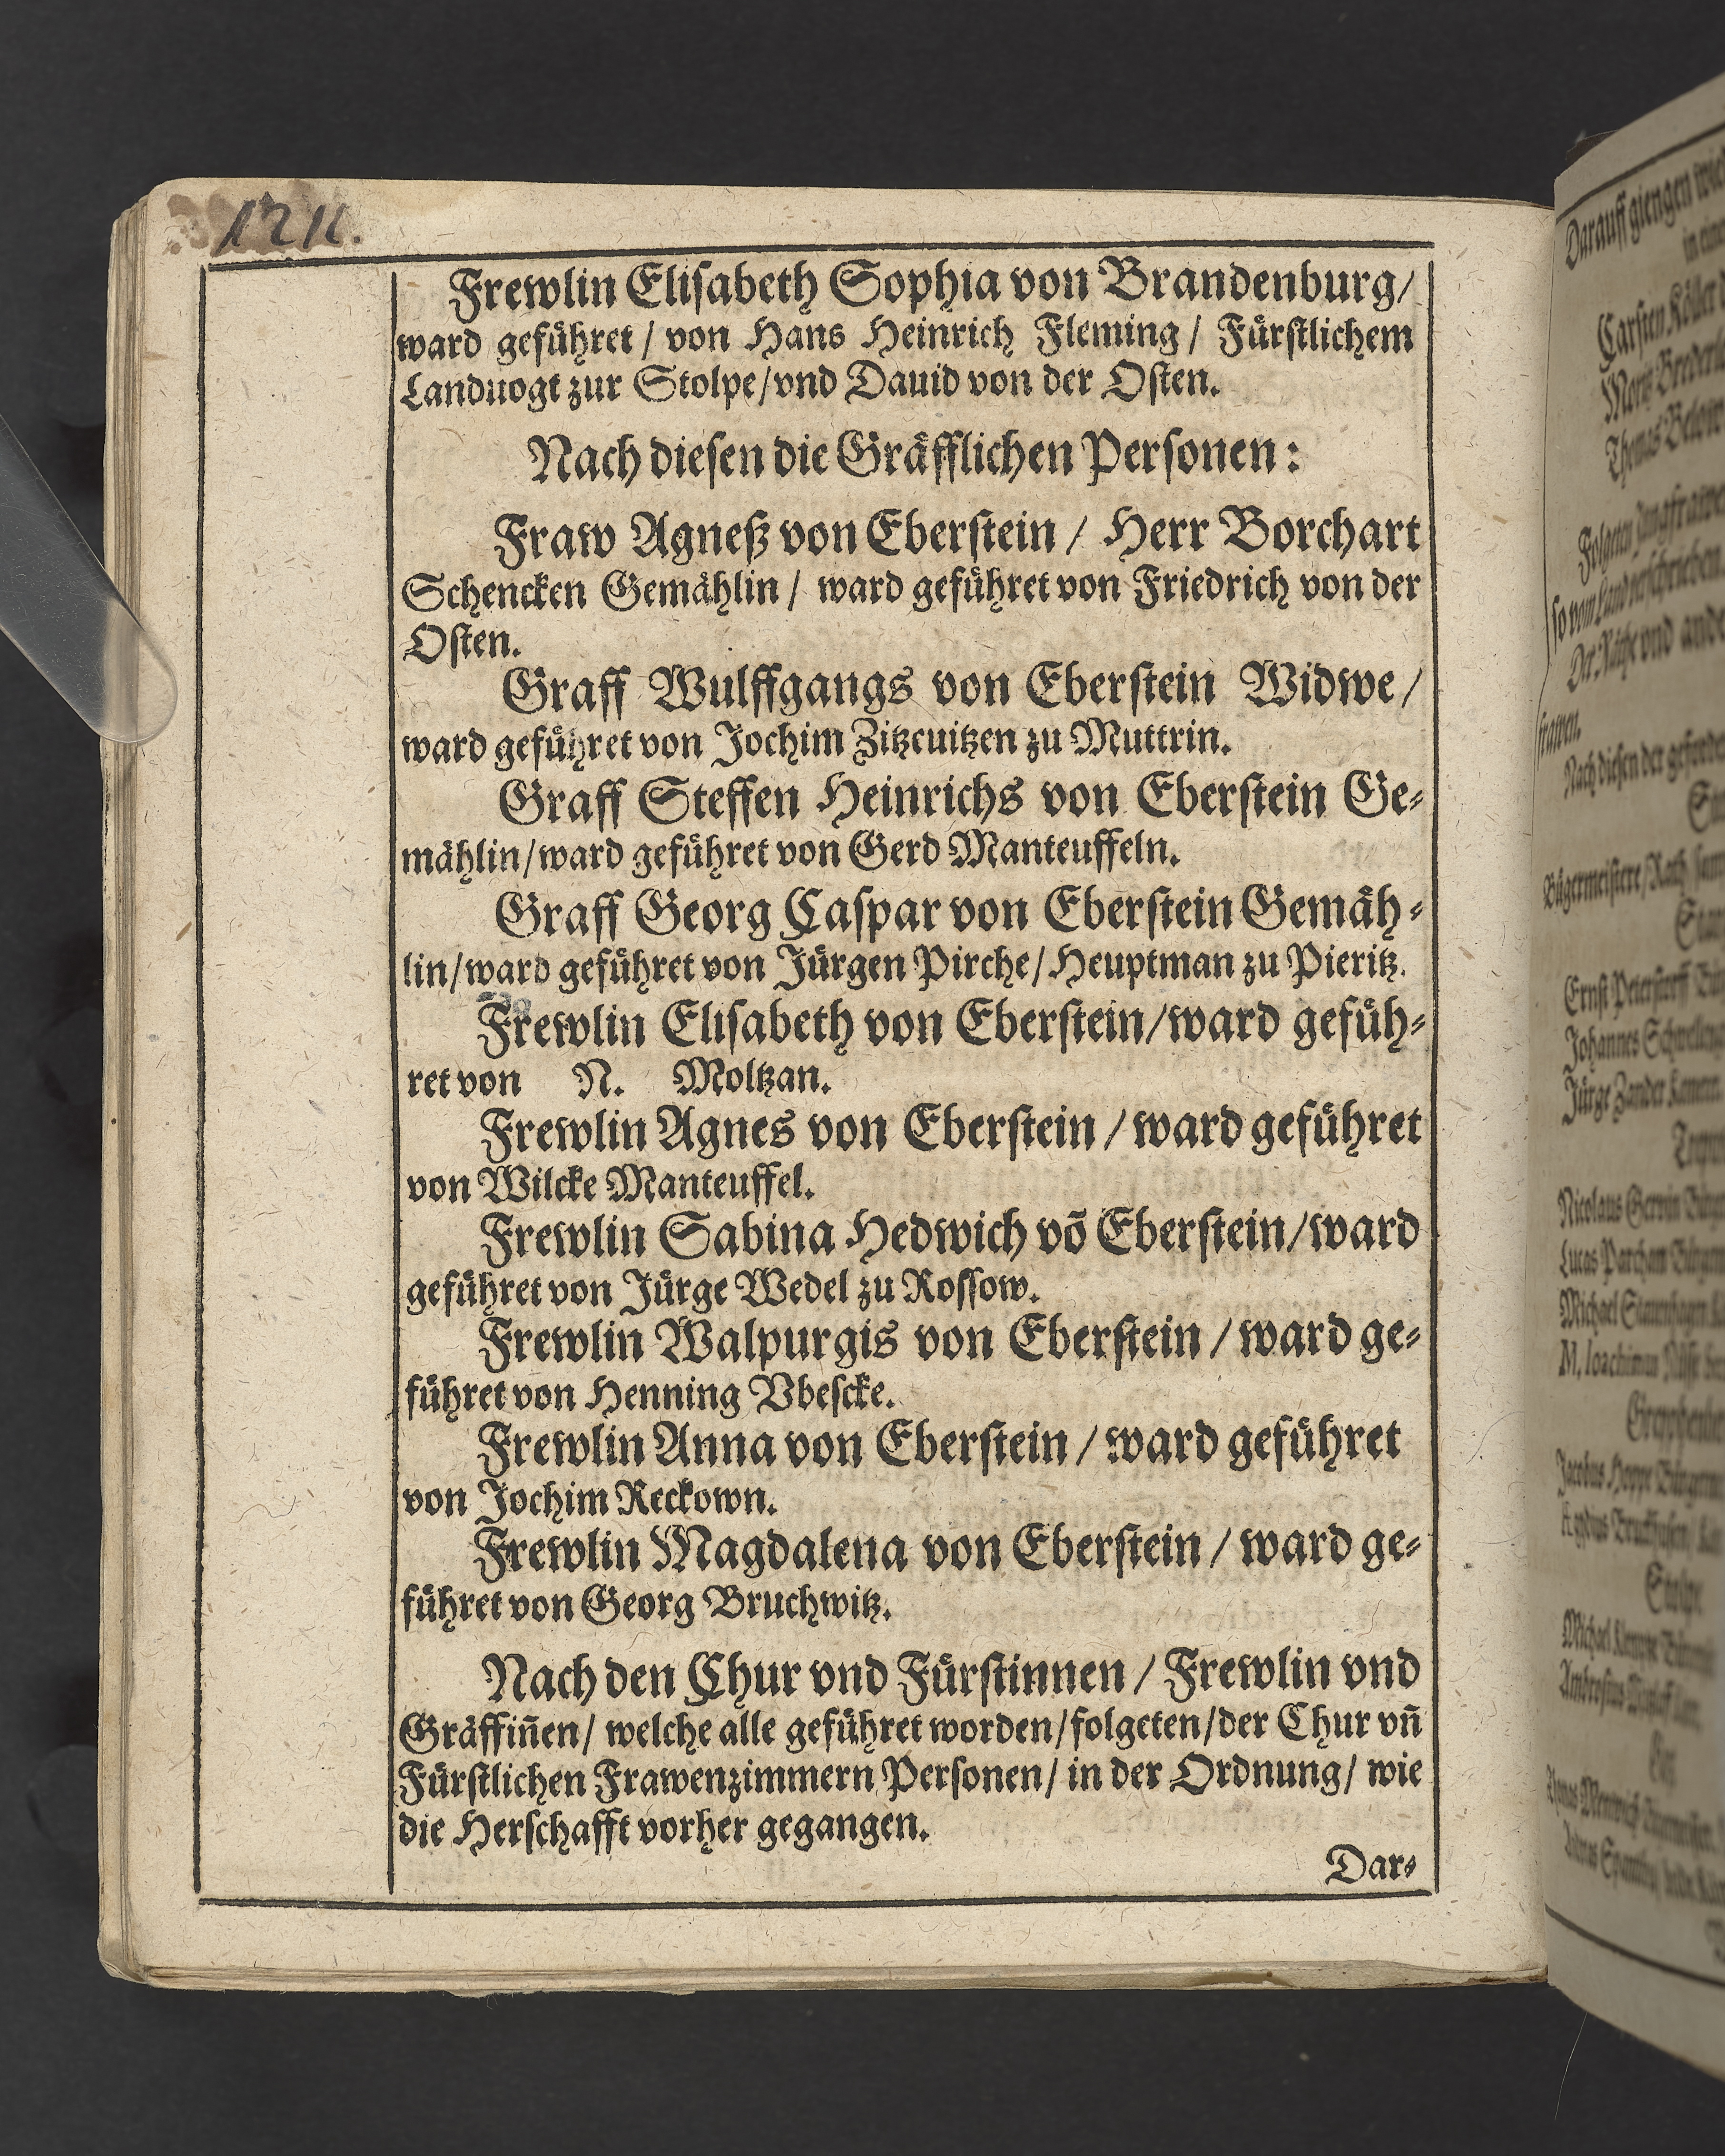 1211.
Frewlin Eliſabeth Sophia von Brandenburg/
ward gefuͤhret / von Hans Heinrich Fleming / Fuͤrſtlichem
Landuogt zur Stolpe/vnd Dauid von der Oſten.
Nach dieſen die Graͤfflichen Perſonen:
Fraw Agneß von Eberſtein / Herr Borchart
Schencken Gemaͤhlin / ward gefuͤhret von Friedrich von der
Oſten.
Graff Wulffgangs von Eberſtein Widwe /
ward gefuͤhret von Jochim Zitzcuitzen zu Muttrin.
Graff Steffen Heinrichs von Eberſtein Ge⸗
maͤhlin/ward gefuͤhret von Gerd Manteuffeln.
Graff Georg Caſpar von Eberſtein Gemaͤh⸗
lin/ward gefuͤhret von Juͤrgen Pirche/Heuptman zu Pieritz.
Frewlin Eliſabeth von Eberſtein/ward gefuͤh⸗
ret von N. Moltzan.
Frewlin Agnes von Eberſtein / ward gefuͤhret
von Wilcke Manteuffel.
Frewlin Sabina Hedwich võ Eberſtein/ward
gefuͤhret von Juͤrge Wedel zu Roſſow.
Frewlin Walpurgis von Eberſtein / ward ge⸗
fuͤhret von Henning Vbeſcke.
Frewlin Anna von Eberſtein / ward gefuͤhret
von Jochim Reckown.
Frewlin Magdalena von Eberſtein / ward ge⸗
fuͤhret von Georg Bruchwitz.
Nach den Chur vnd Fuͤrſtinnen / Frewlin vnd
Graͤffiñen/ welche alle gefuͤhret worden/folgeten/der Chur vñ
Fuͤrſtlichen Frawenzimmern Perſonen/ in der Ordnung/ wie
die Herſchafft vorher gegangen.
Dar⸗
Darauff giengen
Carſten Köller
Thomas Below
Folgeten
vnd
Nach dieſen der
Ernſt
Johannes
Jürge Zander
Nicolaus
Lucas Parcham
Michael
Jacobus Hoppe
Stolpe
Michael